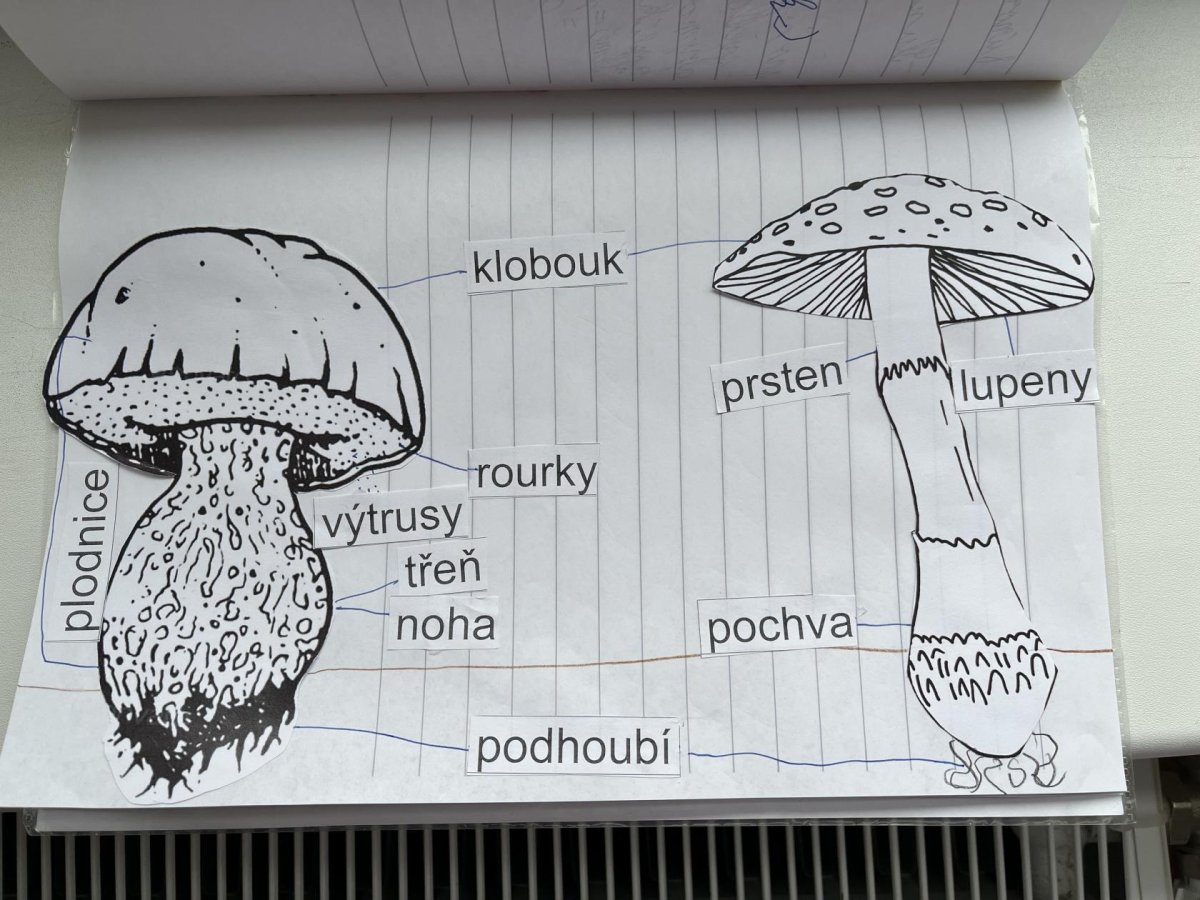 klobouk
prsten
lupeny
rourky
plodnice
výtrusy
třeň
noha
pochva
podhoubí